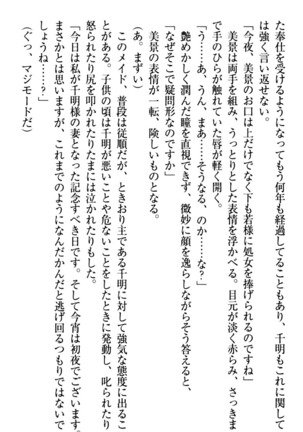 た奉仕を受けるようになってもう何年も経過してることもあり、千明もこれに関して
は強く言い返せない。
「今夜、美景のお口は上だけでなく下も若様に処女を捧げられるのですね」
美景は両手を組み、うっとりとした表情を浮かべる。目元が淡く赤らみ、さっきま
で手のひらが触れていた唇が軽く開く。
「う……あ、うん、まあ……そうなる、のか………な？」
艶めかしく潤んだ瞳を直視できず、微妙に顔を逸らしながらそう答えると、
「なぜそこで疑問形なのですか」
美景の表情が一転、険しいものとなる。
（あ。まずい）
このメイド、普段は従順だが、ときおり主である千明に対して強気な態度に出るこ
とがある。子供の頃は千明が悪いことや危ないことをしたときに発動し、叱られたり
怒られたり尻を叩かれたりたまには泣かれたりもした。
「今日は私が千明様の妻となった記念すべき日です。そして今宵は初夜でございます。
まさかとは思いますが、これまでのようになんだかんだと逃げ回るつもりではないで
しょうね……？」
（ぐっ、マジモードだ）